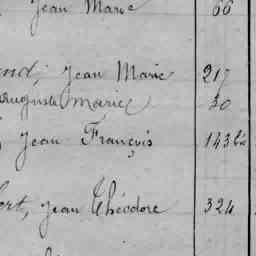 Jean Marie 66
and, Jean Marie 217
Auguste Marie 30
Jean François 143 bis
bert, Jean Théodore 324